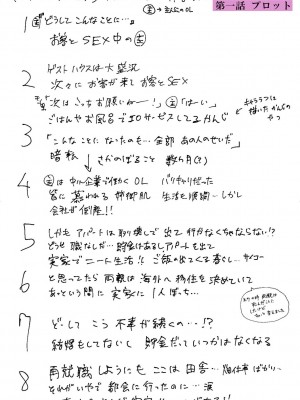 第一話 プロット
主→主人公のOL
1 主「どうしてこんなことに…」
お客とSEX中の主
2 ゲストハウスは大盛況
次々にお客が来てお客とSEX
「次はこっちお願いねー！」主「はーい」
ごはんやお風呂でエロサービスしてるかんじ
3 「こんなことになったのも…全部 あの人のせいだ」
暗転 さかのぼること 数ヶ月(?)
4 主は中小企業で働くOL バリキャリだった
皆に慕われる姉御肌 生活も順調…しかし
会社が倒産!!
5 しかもアパートは取り壊しで出て行かなくちゃならない!?
どうせ職なしだ…貯金はあるしアパートも出て
実家でニート生活!! ご飯の出てくる喜び サイコー
6 と思ってたら両親は海外へ移住を決めていて
あっという間に実家に一人ぼっち…
7 どーしてこう不幸が続くの…!?
結婚もしてないし 貯金だっていつかはなくなる
8 再就職しようにもここは田舎…畑仕事ばかり…
それがいやで都会に行ったのに…涙